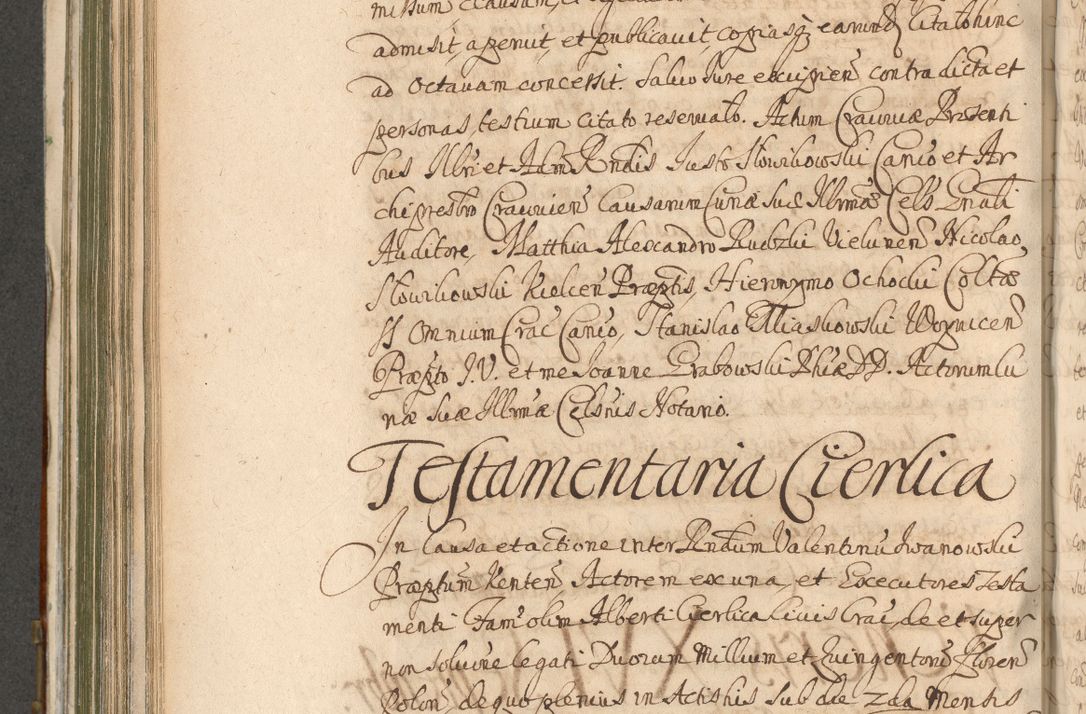 admisit, aperuit, et publicauit, copiasq́ earund Citato hinc
ad Octauam concessit. Saluo Iure excipien̄ contra dicta et
personas testium citato reseruato. Actum Cracouiæ Præsenti
bus Illri et Adm Rndis Iusto Słowikowski Can̄co et Ar
chipresbro Cracouien̄ Causarum Curiæ Suæ Illrmæ Cels Gnali
Auditore, Matthia Alexandro Rudzki Vielunen̄ Nicolao
Słowikowski Kielcen̄ Præptis, Hieronymo Ochocki Coltæ
SS Omnium Crac Can̄co, Stanislao Eliaskowski Woynicen̄
Præpto I.V. et me Ioanne Grabowski Phiæ DD. Actorum Cu
riæ Suæ Illrmæ Celsnis Notario.
Testamentaria Cierlica
In Causa et actione inter Rndum Valentinu Iwanowski
Præptum Kenten̄ Actorem ex una, et Executores Testa
menti Fam olim Alberti Cierlica Ciuis Crac̄, de et super
non solutione legati Duorum Millium et Quingentoru Floren̄
Polon̄, de quo plenius in Actis his sub die 2da Mensis